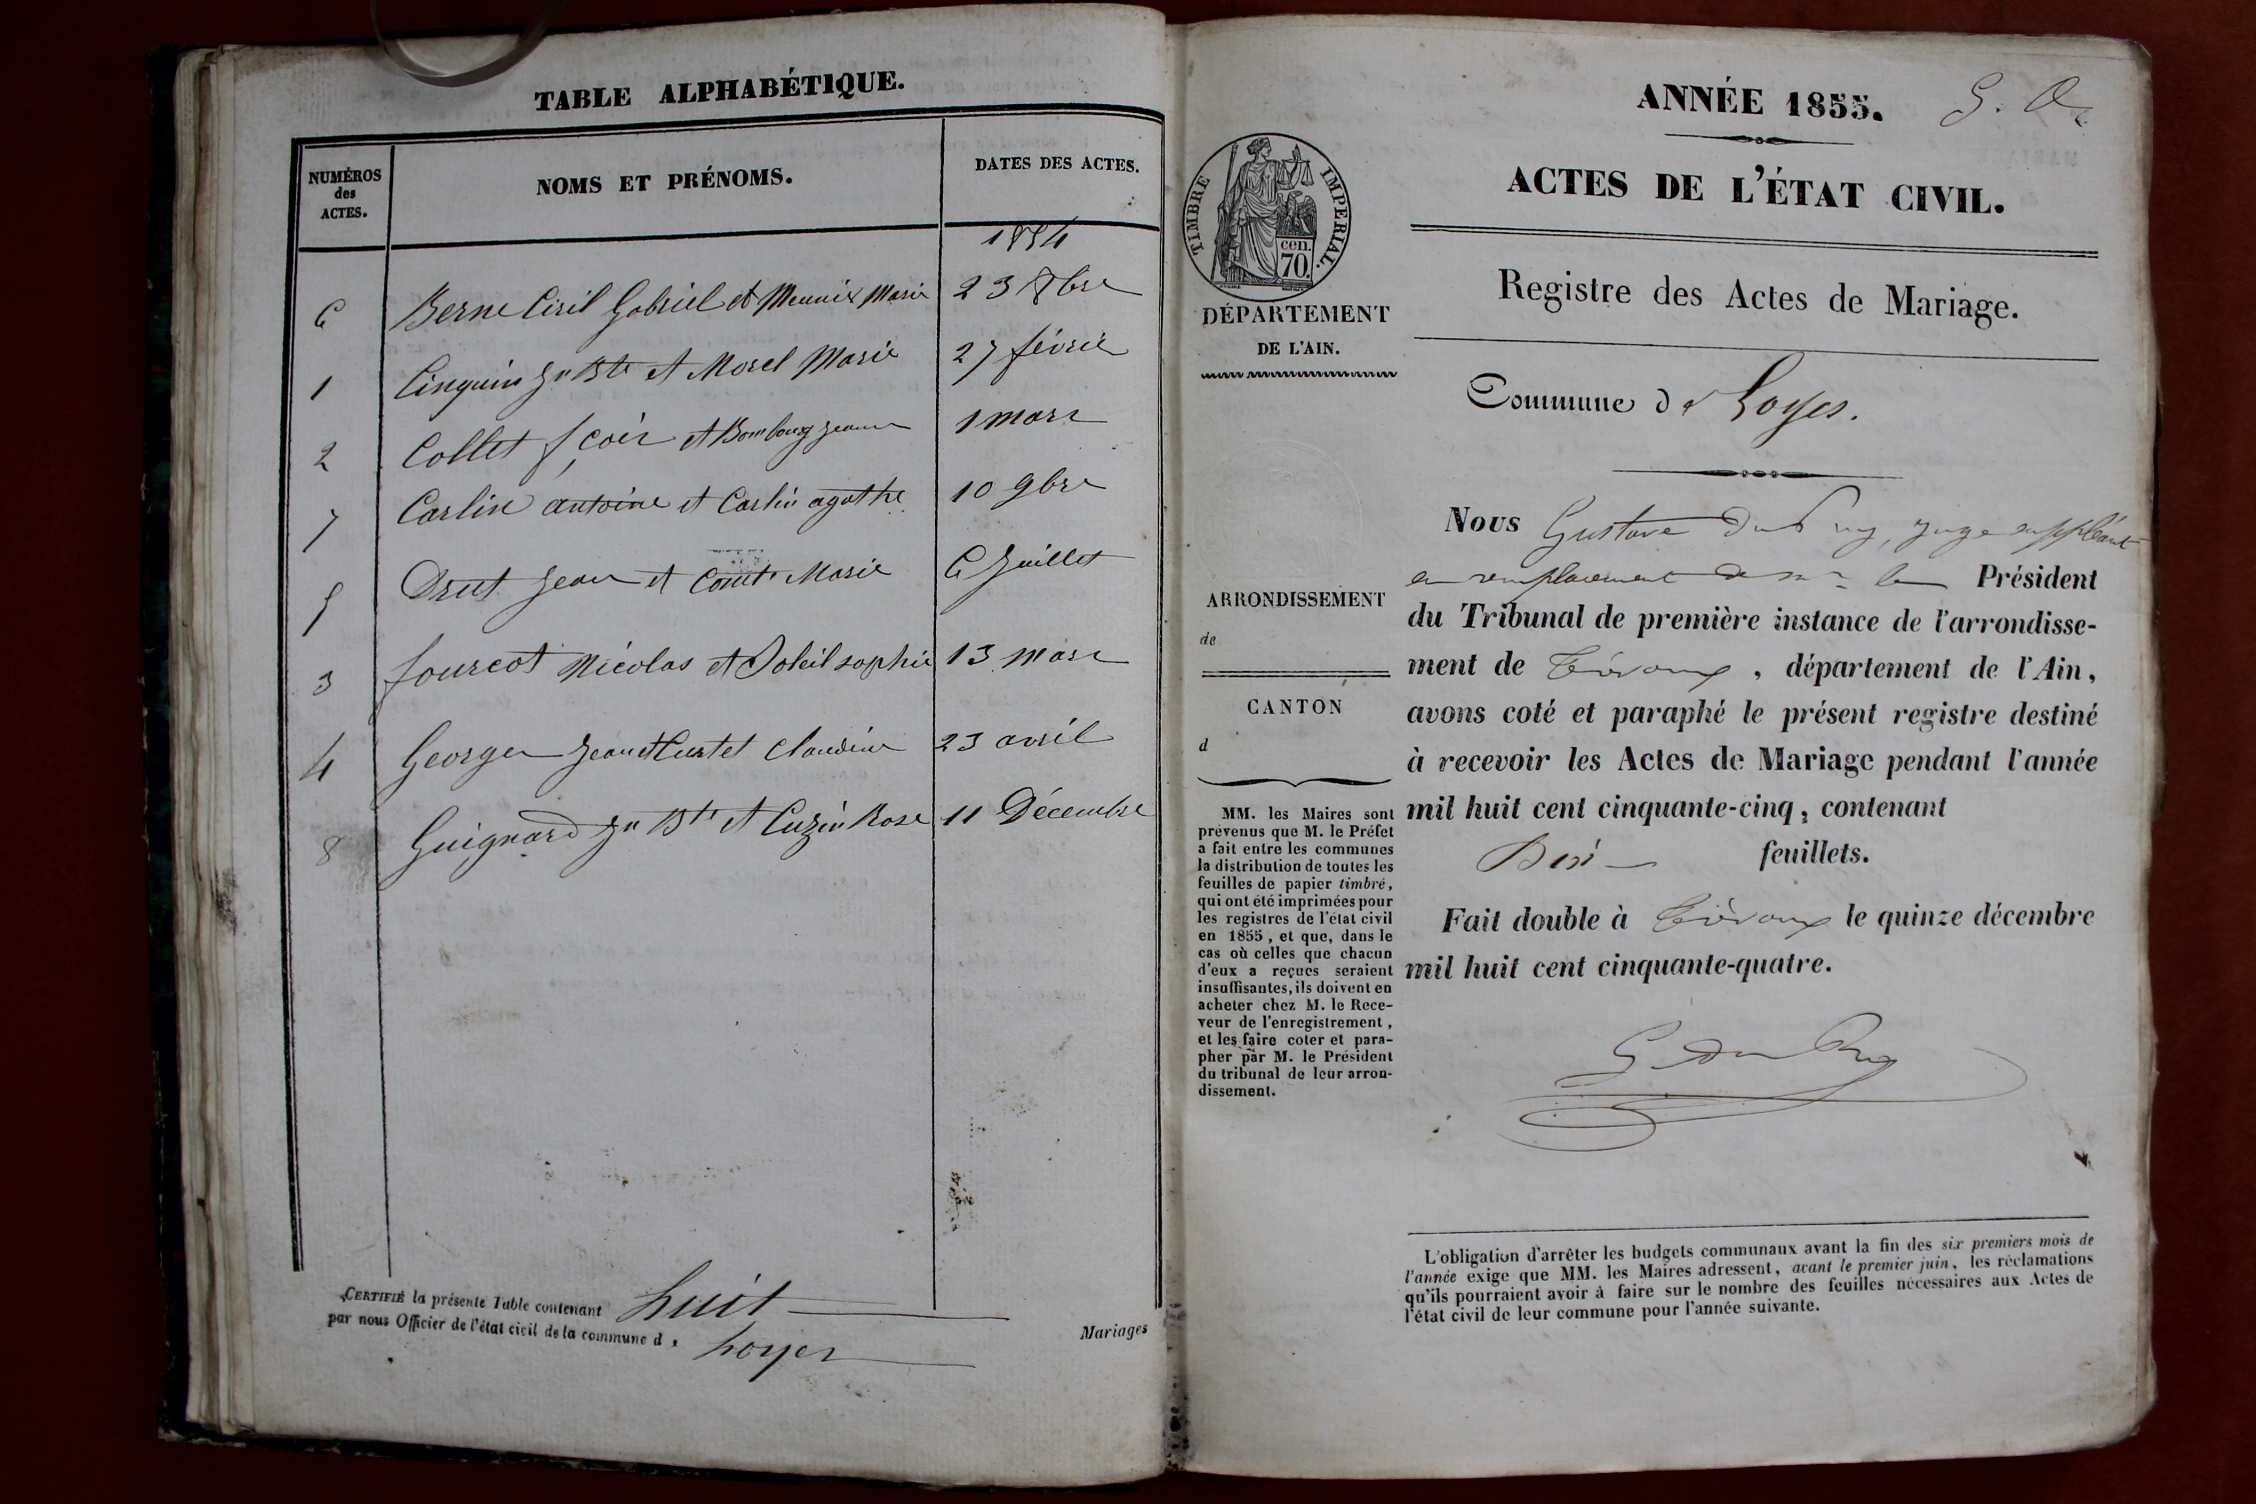 TABLE ALPHABÉTIQUE.
NUMÉROS
des
ACTES.
NOMS ET PRÉNOMS.
DATES DES ACTES.
1854
6 Berne Ciril Gabriel et Meunier Marie 23 8bre
1 Cinquin Jn Bte et Morel Marie 27 février
2 Collet fçois et Jeanne 1 mars
7 Carlin antoine et Carlin agathe 10 9bre
5 Drut Jean et Comte Marie 6 Juillet
3 fourcot Nicolas et Soleil sophie 13 mars
4 Georges Jean et Curtet Claudine 23 avril
8 Guignard Jn Bte et Cuzin Rose 11 Décembre
CERTIFIÉ la présente Table contenant huit
Mariages
par nous Officier de l'état civil de la commune d e Loyes
ANNÉE 1855.
ACTES DE L'ÉTAT CIVIL.
Registre des Actes de Mariage.
Commune de Loyes.
Nous Gustave juge suppléant
en remplacement de Mr le Président
du Tribunal de première instance de l'arrondisse-
ment de Trévoux, département de l'Ain,
avons coté et paraphé le présent registre destiné
à recevoir les Actes de Mariage pendant l'année
mil huit cent cinquante-cinq, contenant
feuillets.
Fait double à Trévoux le quinze décembre
mil huit cent cinquante-quatre.
TIMBRE IMPERIAL.
cen.
70.
DÉPARTEMENT
DE L'AIN.
ARRONDISSEMENT
de
CANTON
d
MM. les Maires sont
prévenus que M. le Préfet
a fait entre les communes
la distribution de toutes les
feuilles de papier timbré,
qui ont été imprimées pour
les registres de l'état civil
en 1855, et que, dans le
cas où celles que chacun
d'eux a reçues seraient
insuffisantes, ils doivent en
acheter chez M. le Rece-
veur de l'enregistrement,
et les faire coter et para-
pher par M. le Président
du tribunal de leur arron-
dissement.
L'obligation d'arrêter les budgets communaux avant la fin des six premiers mois de
l'année exige que MM. les Maires adressent, avant le premier juin, les réclamations
qu'ils pourraient avoir à faire sur le nombre des feuilles nécessaires aux Actes de
l'état civil de leur commune pour l'année suivante.